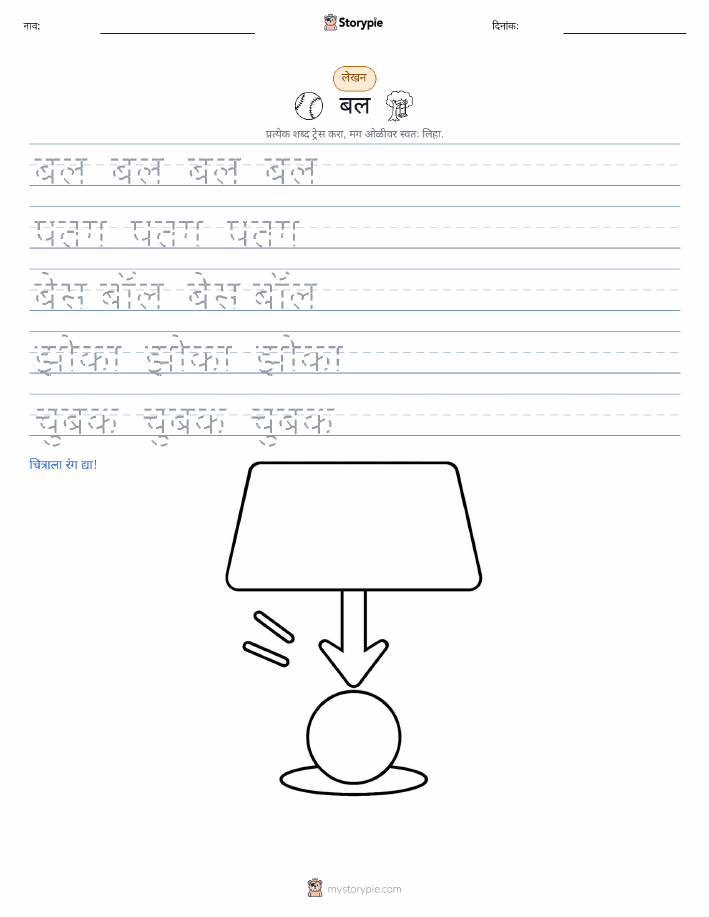 नाव: Storypie दिनांक:
लेखन
बल
प्रत्येक शब्द ट्रेस करा, मग ओळीवर स्वतः लिहा.
बल बल बल बल
पतंग पतंग पतंग
बेस बॉल बेस बॉल
झोका झोका झोका
चुंबक चुंबक चुंबक
चित्राला रंग द्या!
mystorypie.com